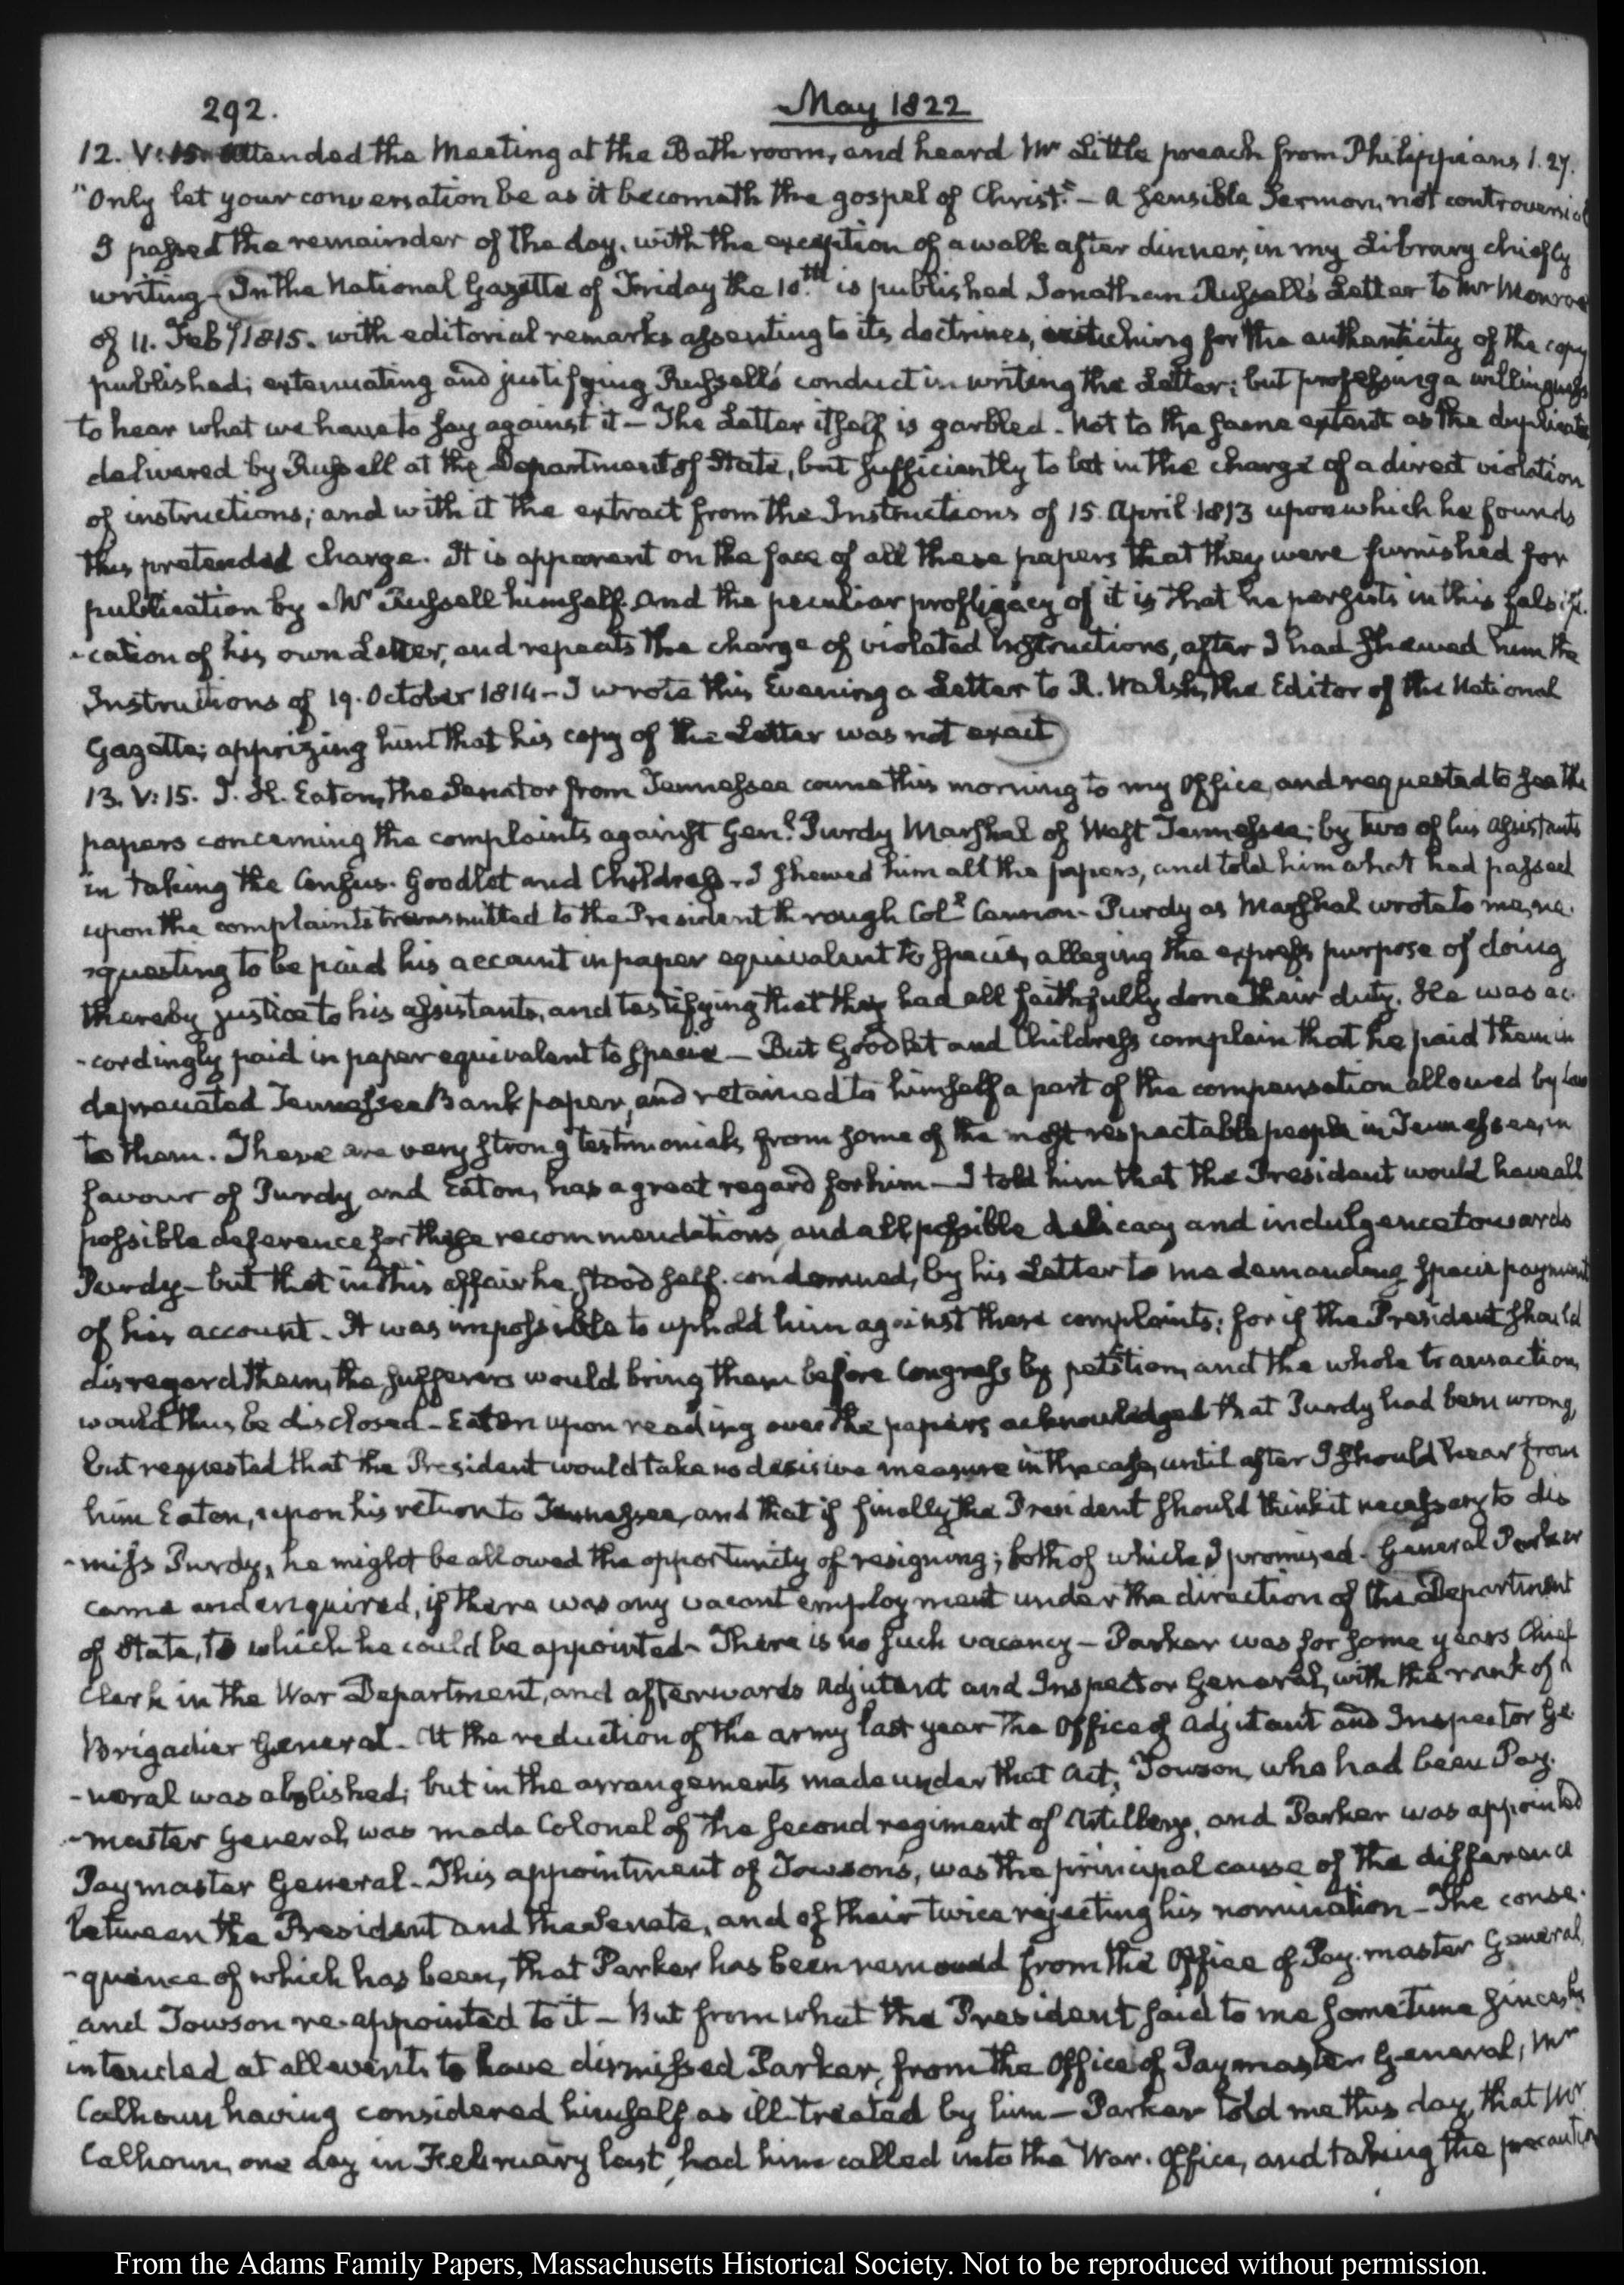 292.
May 1822
12. V:15. Attended the Meeting at the Bath room, and heard Mr Little preach from Philippians 1.27.
"Only let your conversation be as it becometh the gospel of Christ." — A sensible Sermon, not controversial
I passed the remainder of the day, with the exception of a walk after dinner, in my Library chiefly
writing — In the National Gazette of Friday the 10th is published Jonathan Russell's Letter to Mr Monroe
of 11. Feby 1815. with editorial remarks assenting to its doctrines, vouching for the authenticity of the copy
published; extenuating and justifying Russell's conduct in writing the Letter; but professing a willingness
to hear what we have to say against it — The Letter itself is garbled. Not to the same extent as the duplicate
delivered by Russell at the Department of State, but sufficiently to let in the charge of a direct violation
of instructions; and with it the extract from the Instructions of 15. April 1813 upon which he founds
this pretended charge. It is apparent on the face of all these papers that they were furnished for
publication by Mr Russell himself. And the peculiar profligacy of it is that he persists in this falsifi-
-cation of his own Letter, and repeats the charge of violated Instructions, after I had shewed him the
Instructions of 19. October 1814 — I wrote this Evening a Letter to R. Walsh, the Editor of the National
Gazette; apprizing him that his copy of the Letter was not exact
13. V:15. J. H. Eaton, the Senator from Tennessee came this morning to my Office, and requested to see the
papers concerning the complaints against Genl. Purdy Marshal of West Tennessee; by two of his assistants
in taking the Census. Goodlet and Childress. I shewed him all the papers, and told him what had passed
upon the complaints transmitted to the President through Coll Cannon. Purdy as Marshal wrote to me, re-
-questing to be paid his account in paper equivalent to specie, alleging the express purpose of doing
thereby justice to his assistants, and testifying that they had all faithfully done their duty. He was ac-
-cordingly paid in paper equivalent to specie — But Goodlet and Childress complain that he paid them in
depreciated Tennessee Bank paper, and retained to himself a part of the compensation allowed by Law
to them. There are very strong testimonials from some of the most respectable people in Tennessee, in
favour of Purdy, and Eaton, has a great regard for him — I told him that the President would have all
possible deference for these recommendations, and all possible delicacy and indulgence towards
Purdy — but that in this affair he stood self-condemned, by his Letter to me demanding specie payment
of his account. It was impossible to uphold him against these complaints; for if the President should
disregard them, the sufferers would bring them before Congress by petition, and the whole transaction,
would thus be disclosed — Eaton upon reading over the papers acknowledged that Purdy had been wrong,
but requested that the President would take no decisive measure in the case, until after I should hear from
him Eaton, upon his return to Tennessee, and that if finally the President should think it necessary to dis
-miss Purdy, he might be allowed the opportunity of resigning; both of which I promised. General Parker
came and enquired, if there was any vacant employment under the direction of the Department
of State, to which he could be appointed — There is no such vacancy — Parker was for some years Chief
Clerk in the War Department, and afterwards Adjutant and Inspector General, with the rank of a
Brigadier General. At the reduction of the army last year the Office of Adjutant and Inspector Ge-
-neral was abolished; but in the arrangements made under that Act, Towson, who had been Pay-
-master General, was made Colonel of the second regiment of Artillery, and Parker was appointed
Paymaster General. This appointment of Towson's, was the principal cause of the difference
between the President and the Senate, and of their twice rejecting his nomination — The conse-
-quence of which has been, that Parker has been removed from the Office of Pay-master General,
and Towson re-appointed to it — But from what the President said to me sometime since, he
intended at all events to have dismissed Parker, from the Office of Paymaster General, Mr
Calhoun having considered himself as ill-treated by him — Parker told me this day, that Mr.
Calhoun, one day in February last, had him called into the War-Office, and taking the precaution
From the Adams Family Papers, Massachusetts Historical Society. Not to be reproduced without permission.